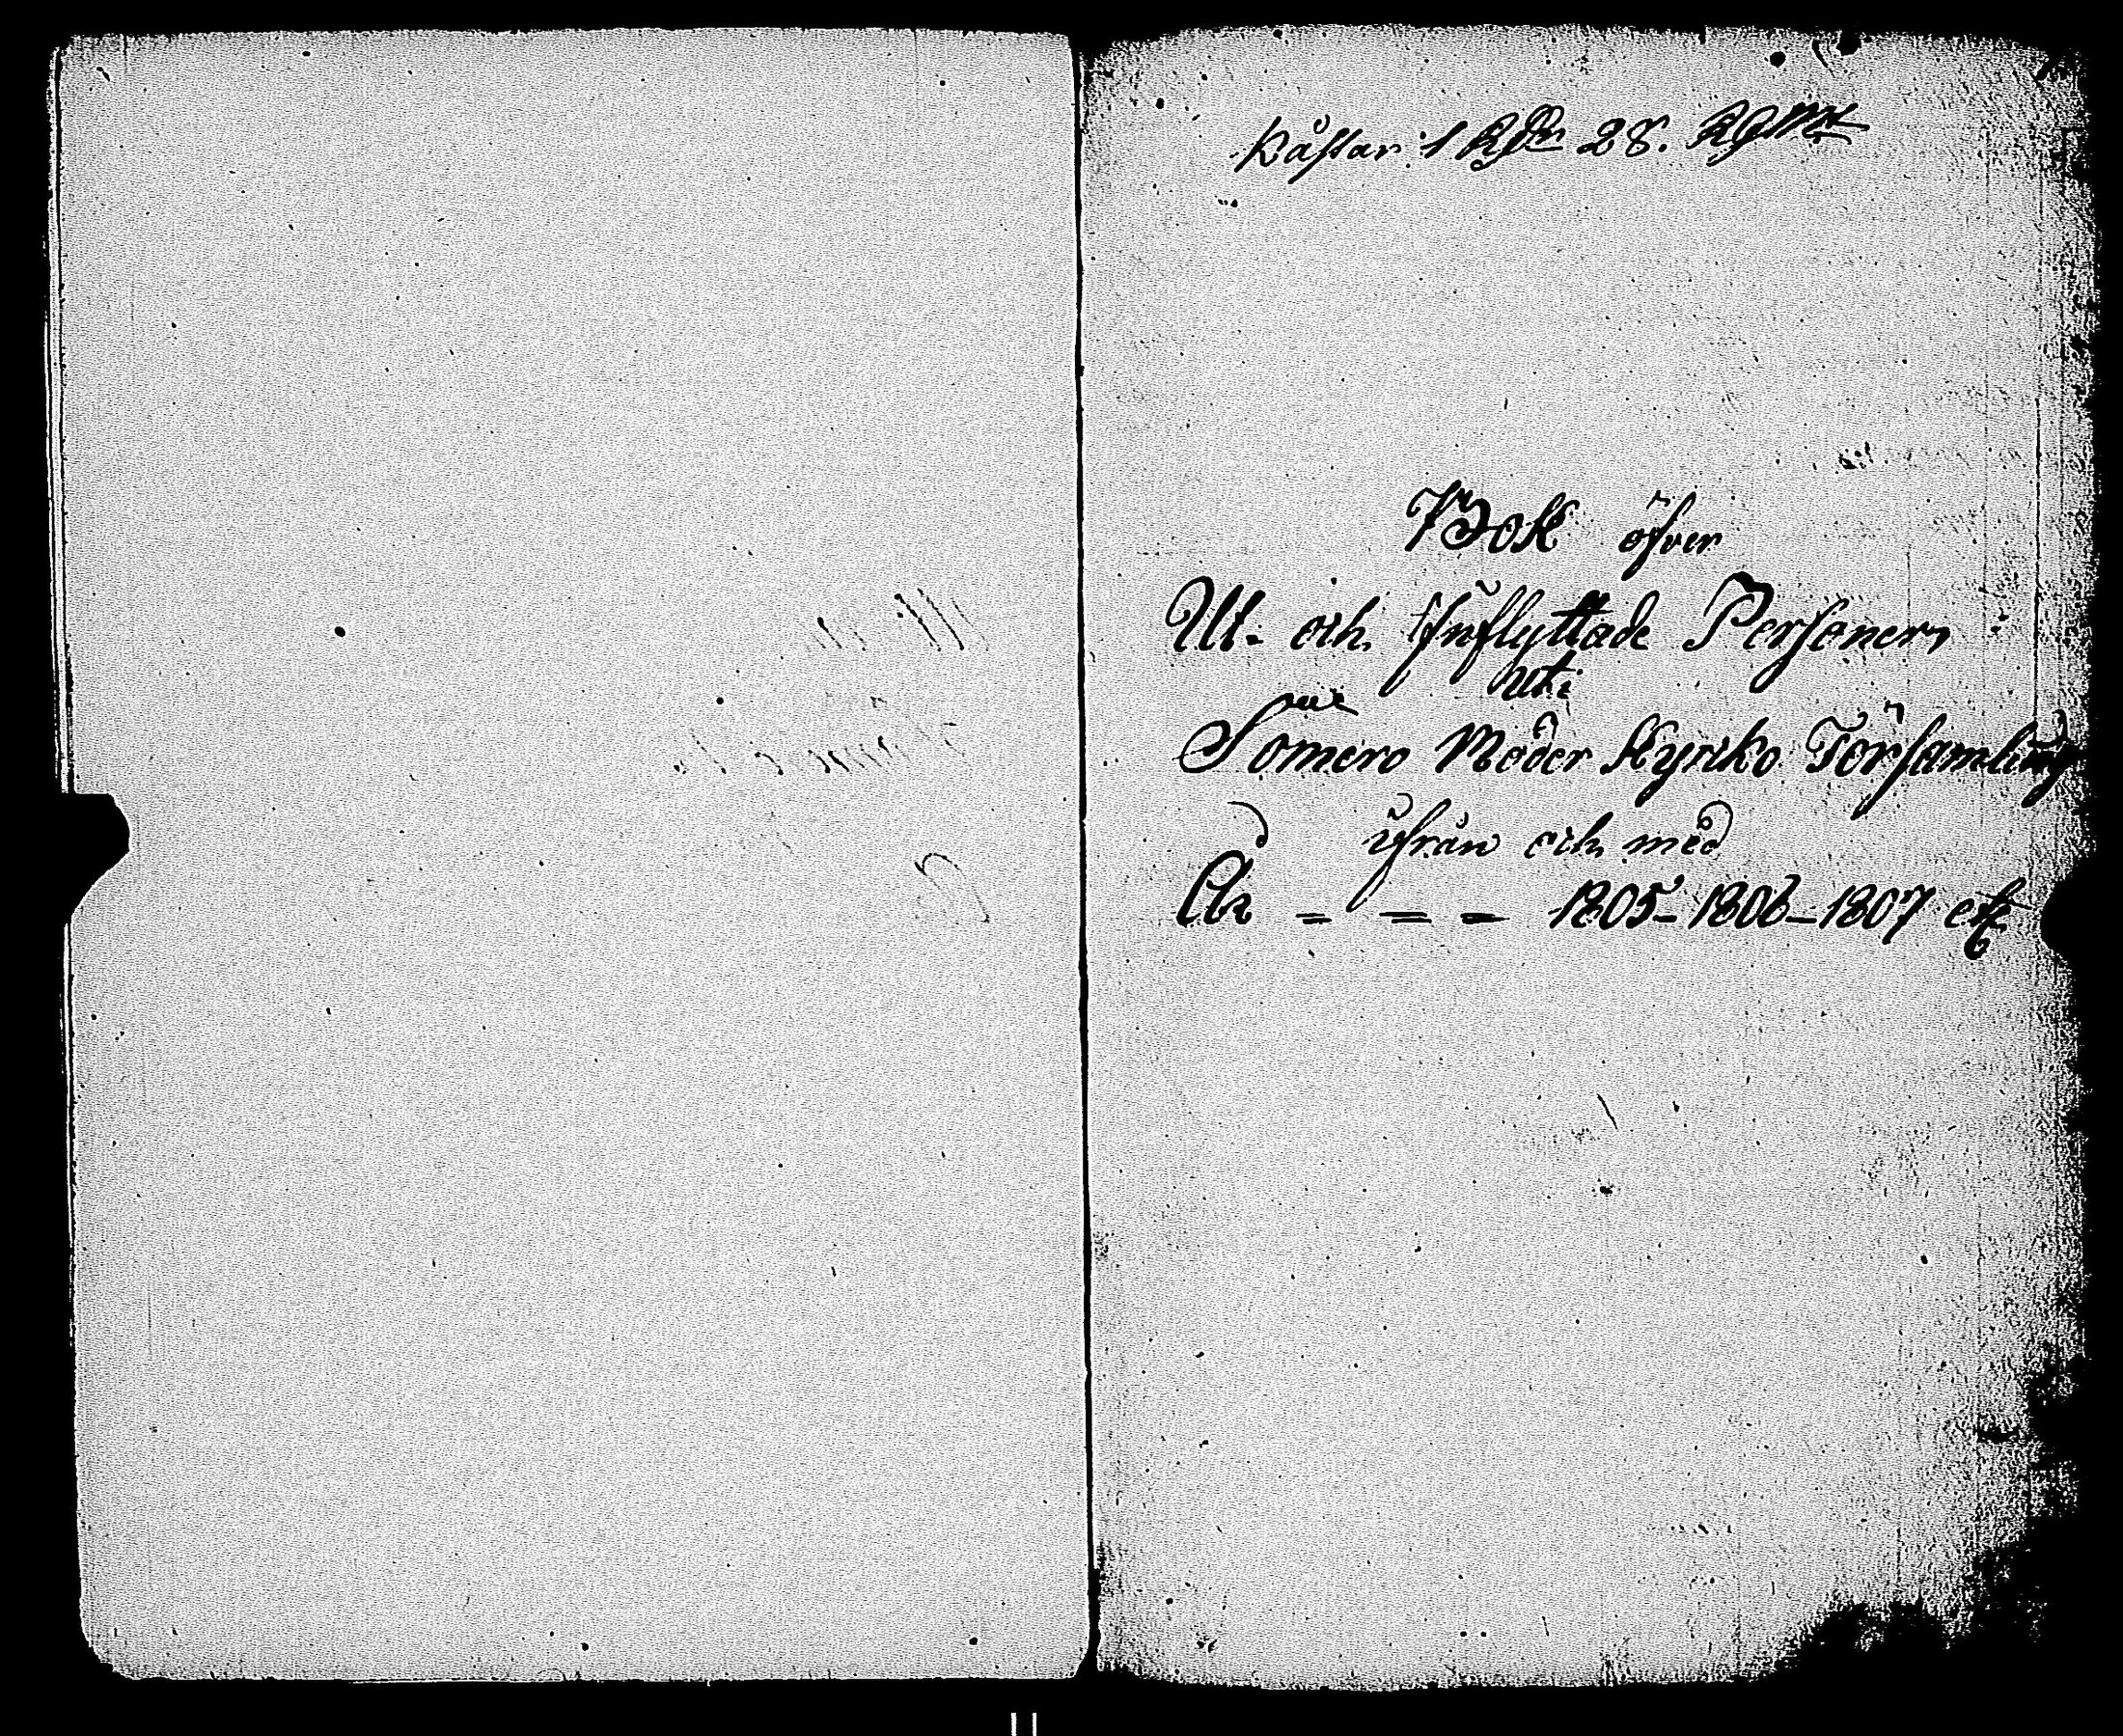 Kåstar 1 Rdr 28. Rgmt
Bok öfver
Ut- och Inflyttade Personer
uti
Somero Moder Kyrcko Församling
ifrån och med
År - = - 1805-1806-1807 etc